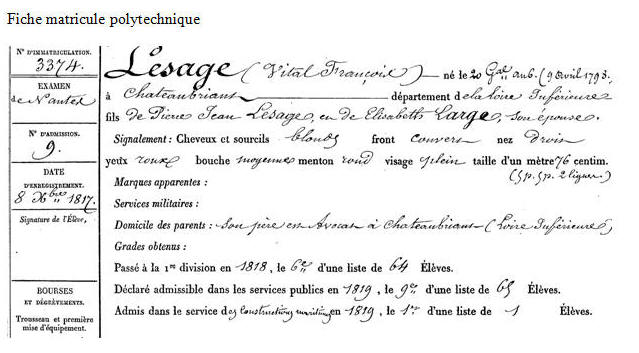 Fiche matricule polytechnique
N° D'IMMATRICULATION.
3374.
EXAMEN
de Nantes
N° D'ADMISSION.
9.
DATE
D'ENREGISTREMENT.
8 Xbre 1817.
Signature de l'Élève.
BOURSES
ET DÉGRÈVEMENTS.
Trousseau et première
mise d'équipement.
Lesage (Vital François) — né le 20 an 6. (9 avril 1798.
à Chateaubriant département de la Loire Inférieure
fils de Pierre Jean Lesage, et de Elisabeth Large, son épouse.
Signalement : Cheveux et sourcils blonds front couvert nez droit
yeux roux bouche moyenne menton rond visage plein taille d'un mètre 76 centim.
(5 p. 5 p. 2 lignes.)
Marques apparentes :
Services militaires :
Domicile des parents : son père est Avocat à Chateaubriant (Loire Inférieure)
Grades obtenus :
Passé à la 1re division en 1818, le 6e d'une liste de 64 Élèves.
Déclaré admissible dans les services publics en 1819, le 9e d'une liste de 65 Élèves.
Admis dans le service des Constructions maritimes en 1819, le 1er d'une liste de 1 Élèves.